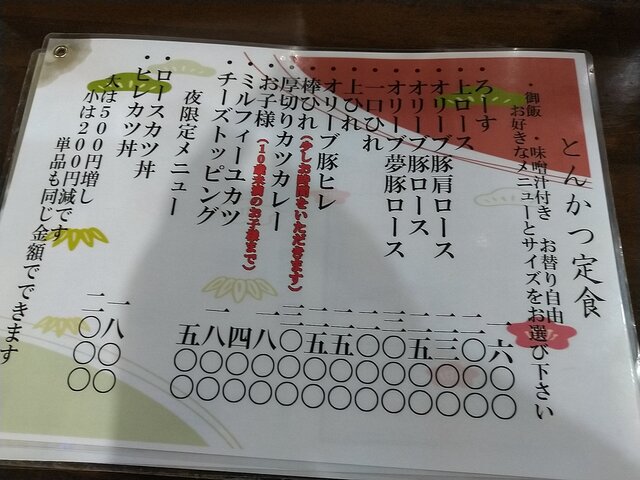 とんかつ定食
・御飯 ・味噌汁付き お替り自由
お好きなメニューとサイズをお選び下さい
・ろーす 一六〇〇
・上ロース 二〇〇〇
・オリーブ豚肩ロース 二三〇〇
・オリーブ豚ロース 二五〇〇
・オリーブ夢豚ロース 三〇〇〇
・一口ひれ 二〇〇〇
・上ひれ 二五〇〇
・オリーブ豚ヒレ 二五〇〇
・棒ひれ(少しお時間をいただきます) 三〇〇〇
・厚切りカツカレー 一八〇〇
・お子様(10歳未満のお子様まで) 四〇〇
・ミルフィーユカツ 一八〇〇
・チーズトッピング 五〇〇
夜限定メニュー
・ロースカツ丼 一八〇〇
・ヒレカツ丼 二〇〇〇
大は500円増し
小は200円減です
単品も同じ金額でできます